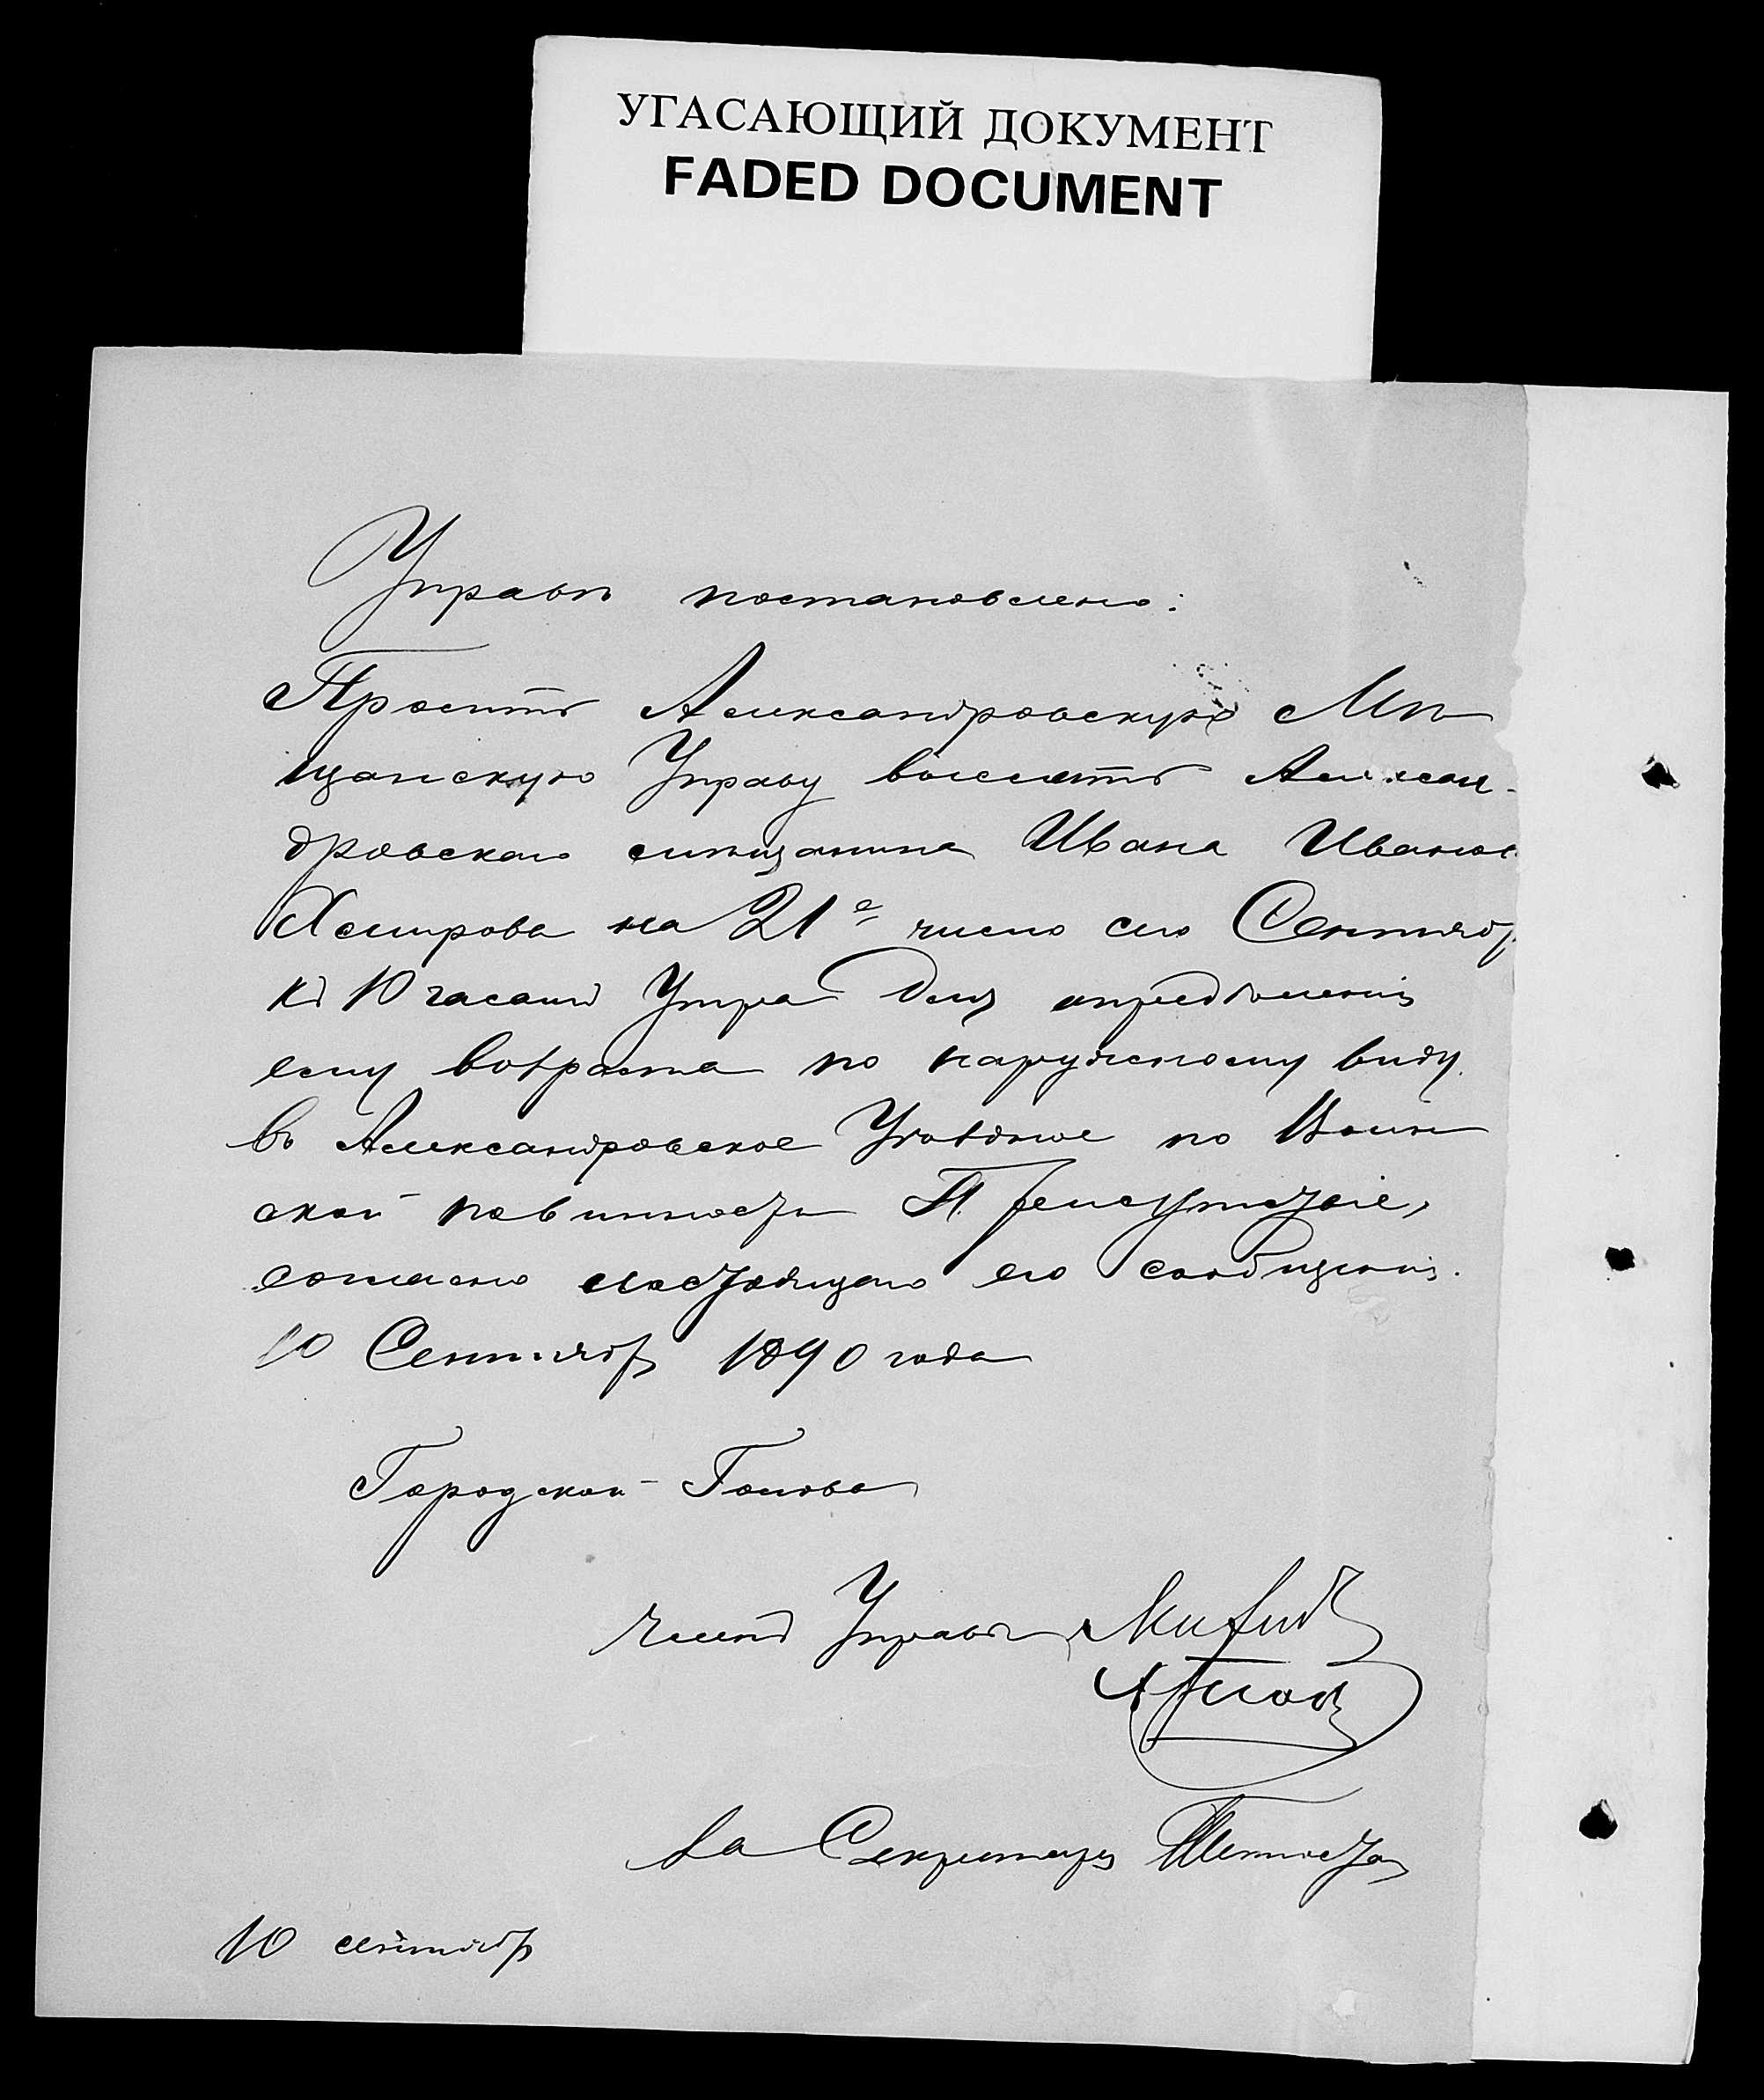 УГАСАЮЩИЙ ДОКУМЕНТ
FADED DOCUMENT
Управѣ постановлено:
Просить Александровскую Мѣ
щанскую Управу выслать Алексан-
дровскаго мѣщанина Ивана Иванов
на 21е число сего Сентябр
къ 10 часамъ Утра для опредѣленія
ему возраста по наружному виду
въ Александровское Уѣздное по Воин
ской повинности Присутствіе,
согласно настоящаго его сообщенія.
10 Сентября 1890 года
Городской Голова
Членъ Управы
За Секретаря
10 сентябр